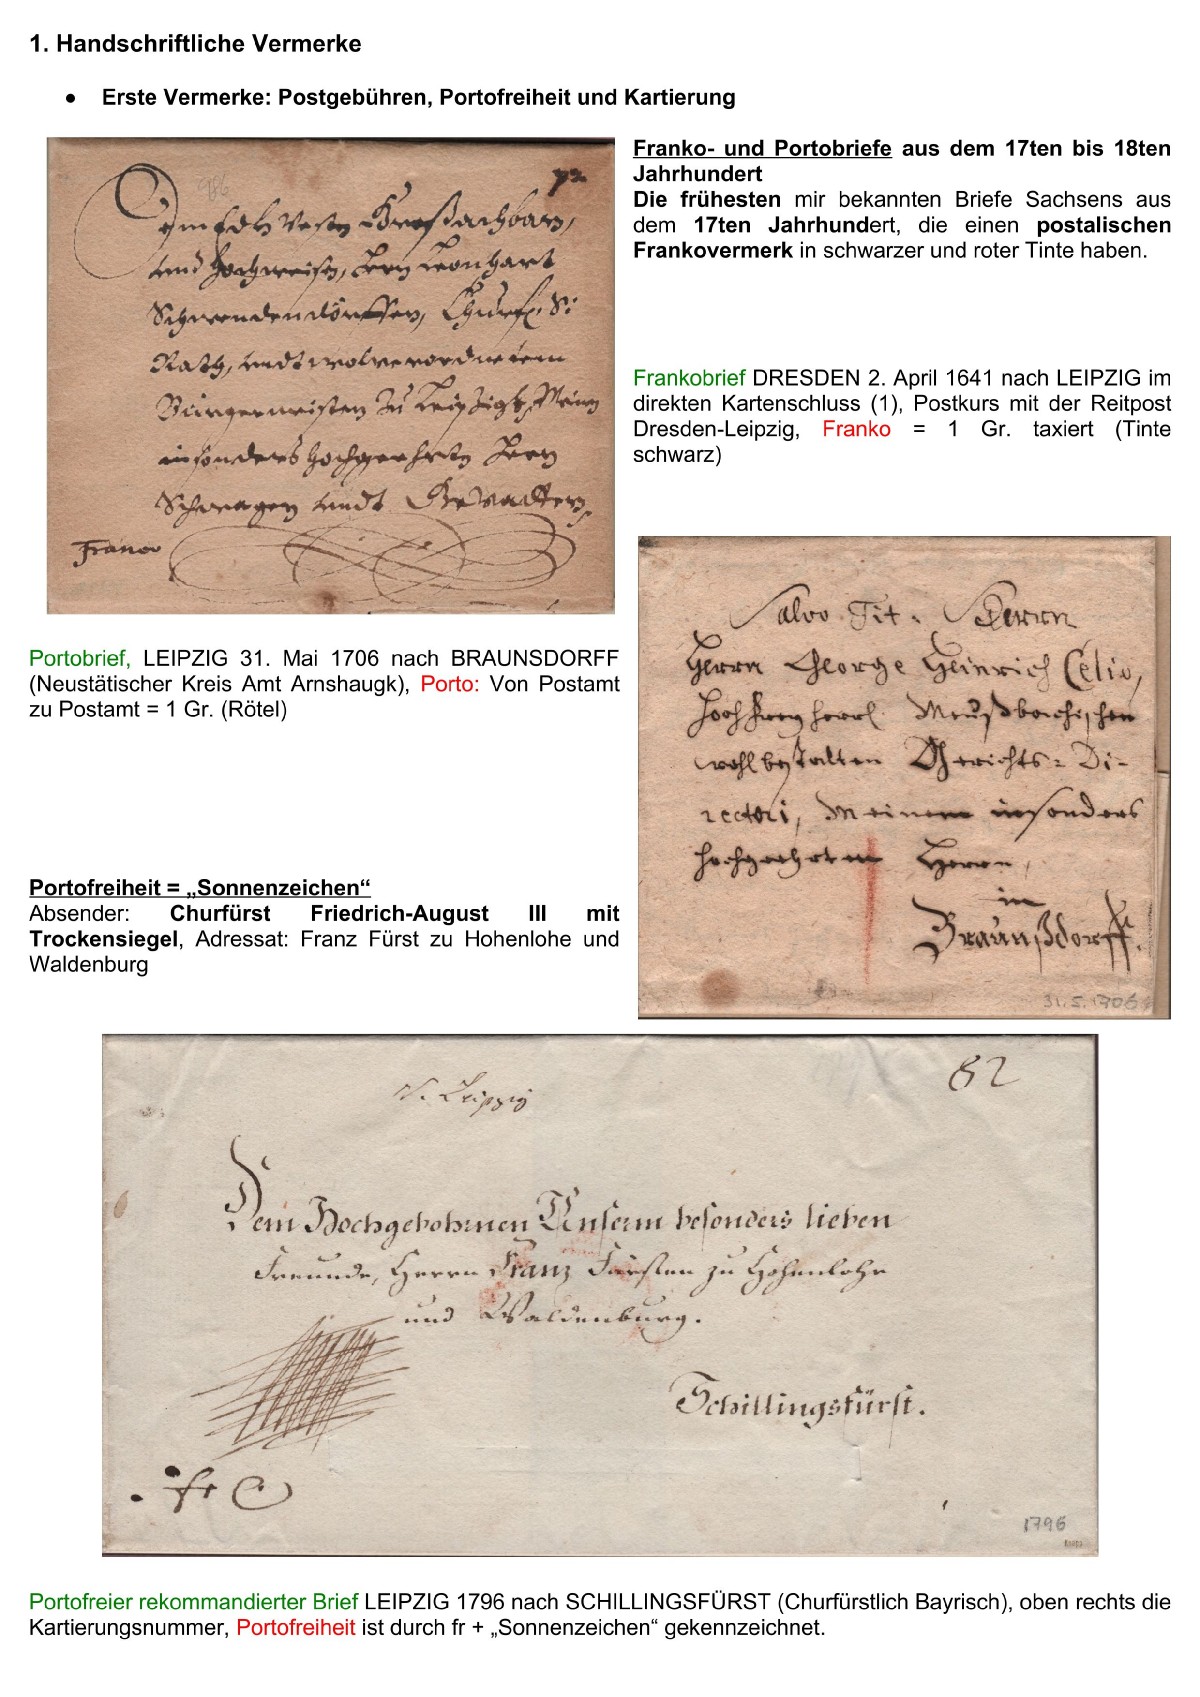 1. Handschriftliche Vermerke
● Erste Vermerke: Postgebühren, Portofreiheit und Kartierung
Franko- und Portobriefe aus dem 17ten bis 18ten
Jahrhundert
Die frühesten mir bekannten Briefe Sachsens aus
dem 17ten Jahrhundert, die einen postalischen
Frankovermerk in schwarzer und roter Tinte haben.
und hochweisen, Herrn Leonhart
Schwendendörffer, Churf. S:
Rath, undt wolverordnetem
Bürgermeister zu Leipzigk, Meinem
insonders hochgeehrten Herrn
Schwager undt Gevattern,
Franco
Frankobrief DRESDEN 2. April 1641 nach LEIPZIG im
direkten Kartenschluss (1), Postkurs mit der Reitpost
Dresden-Leipzig, Franko = 1 Gr. taxiert (Tinte
schwarz)
Salvo Tit. Herrn
Herrn George Heinrich Celio,
wohlbestalten Gerichts-Di-
rectori, Meinem insonders
hochgeehrten Herrn,
in
Braunßdorff.
31.5.1706
Portobrief, LEIPZIG 31. Mai 1706 nach BRAUNSDORFF
(Neustätischer Kreis Amt Arnshaugk), Porto: Von Postamt
zu Postamt = 1 Gr. (Rötel)
Portofreiheit = „Sonnenzeichen“
Absender: Churfürst Friedrich-August III mit
Trockensiegel, Adressat: Franz Fürst zu Hohenlohe und
Waldenburg
82
v. Leipzig
Dem Hochgebohrnen Unserm besonders lieben
Freunde, Herrn Franz Fürsten zu Hohenlohe
und Waldenburg.
Schillingsfürst.
fr
1796
Portofreier rekommandierter Brief LEIPZIG 1796 nach SCHILLINGSFÜRST (Churfürstlich Bayrisch), oben rechts die
Kartierungsnummer, Portofreiheit ist durch fr + „Sonnenzeichen“ gekennzeichnet.